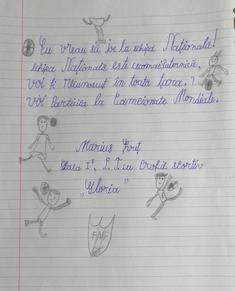 Eu vreau să joc la echipa Națională!
Echipa Națională este cea mai
voi fi recunoscut în toată țara.
voi participa la Campionate Mondiale.
Marius
Clasa I
Profil sportiv
"Gloria"